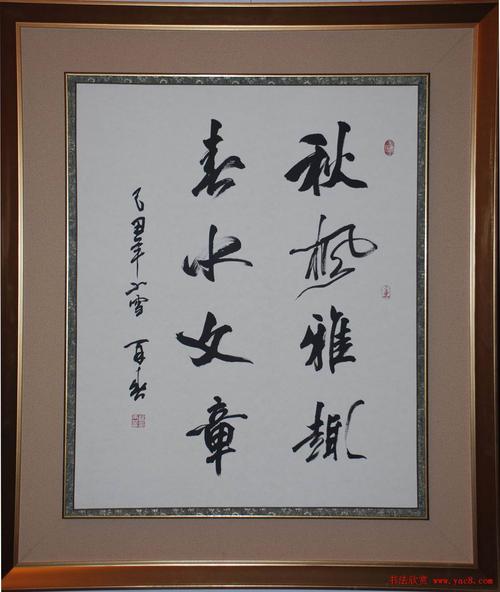 秋枫雅趣
春水文章
己丑年小雪
书法欣赏 www.yac8.com